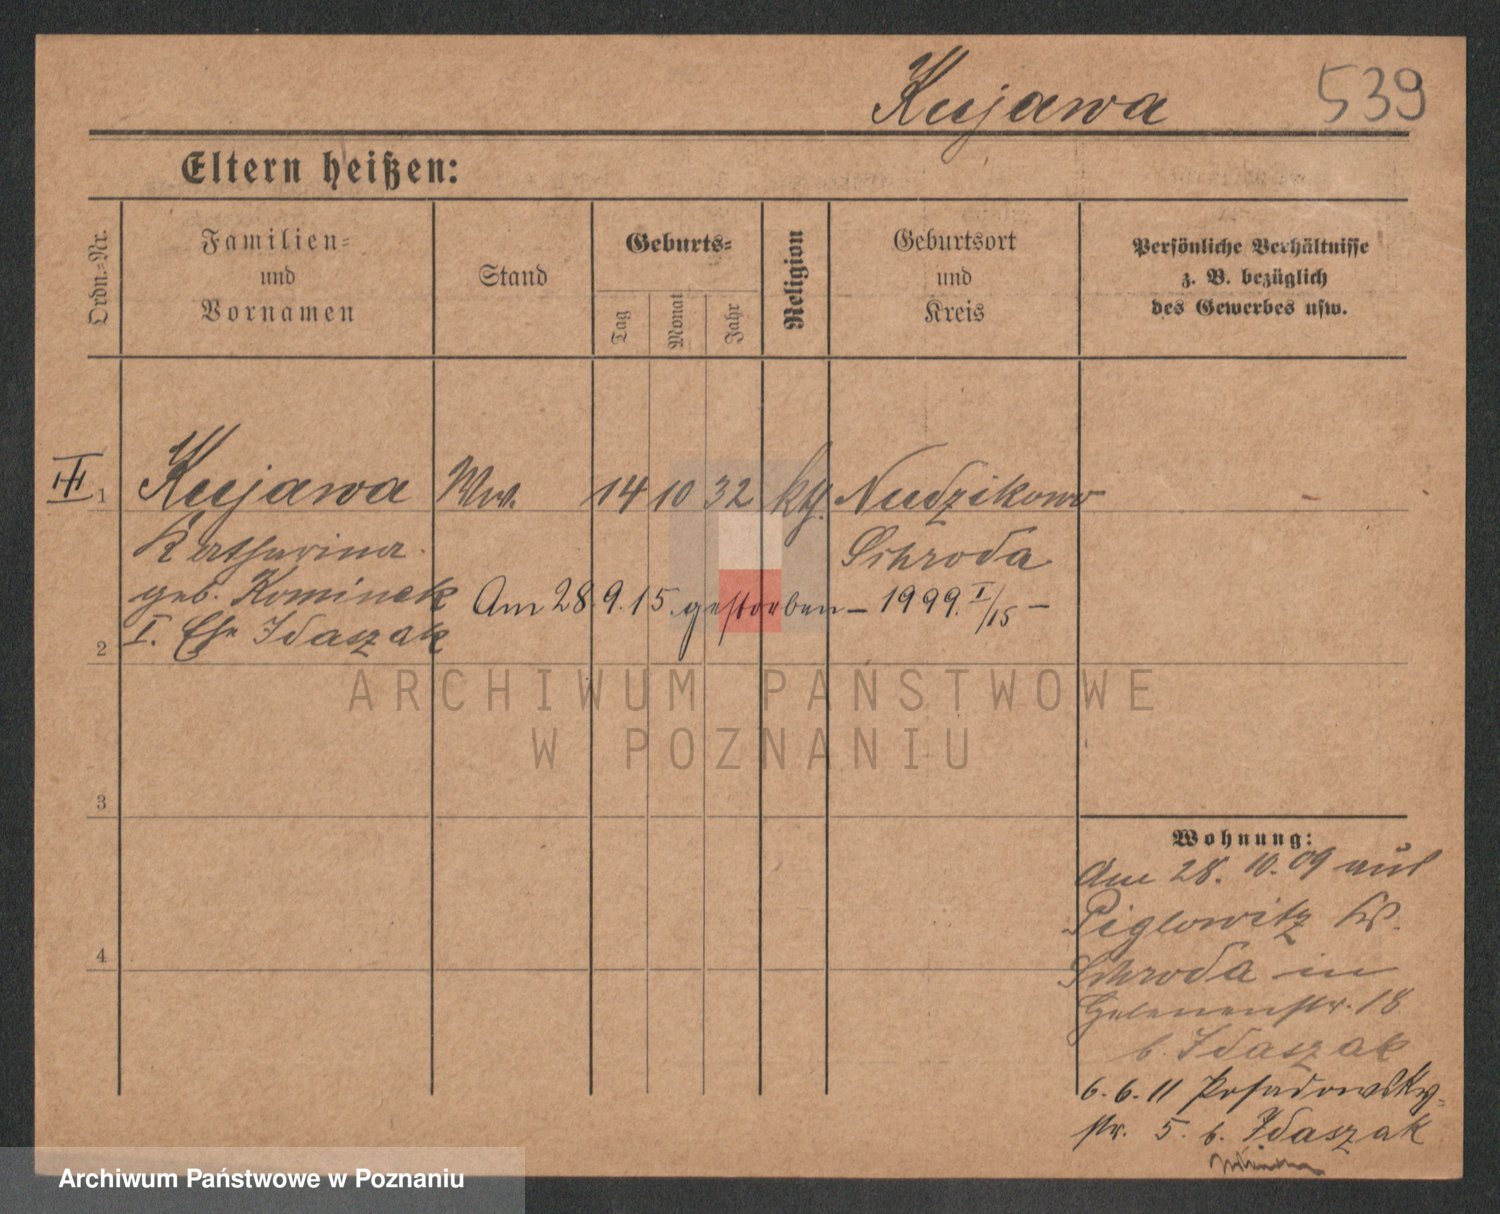 Kujawa 539
Eltern heißen:
Ordn.=Nr.
Familien=
und
Vornamen
Stand
Geburts=
Tag
Monat
Jahr
Religion
Geburtsort
und
Kreis
Persönliche Verhältnisse
z. B. bezüglich
des Gewerbes usw.
III 1 Kujawa Ww. 14 10 32 kth. Nudzikowo
Katharina Schroda
geb. Kominek Am 28.9.15. gestorben – 1999. I/15 –
I. Ehe Idaszak
2
3
4
ARCHIWUM PAŃSTWOWE
W POZNANIU
Wohnung:
Am 28. 10. 09 aus
Piglowitz Kr.
Schroda in
Helenenstr. 18
b. Idaszak
6. 6. 11 Posadowsky=
str. 5. b. Idaszak
Archiwum Państwowe w Poznaniu